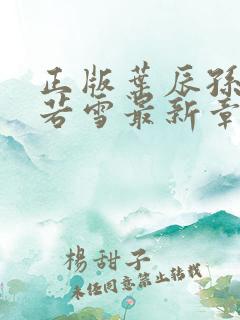 正版葉辰孫
若雪最新章
楊甜子
未经同意禁止转载